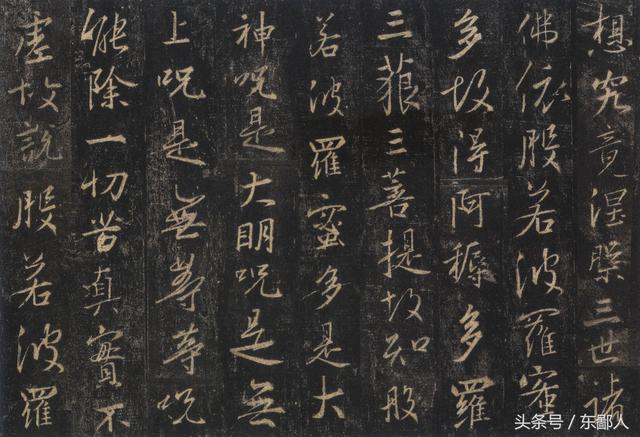 想究竟涅槃三世諸
佛依般若波羅蜜
多故得阿耨多羅
三藐三菩提故知般
若波羅蜜多是大
神呪是大明呪是無
上呪是無等等呪
能除一切苦真實不
虛故說般若波羅
头条号 / 东鄙人